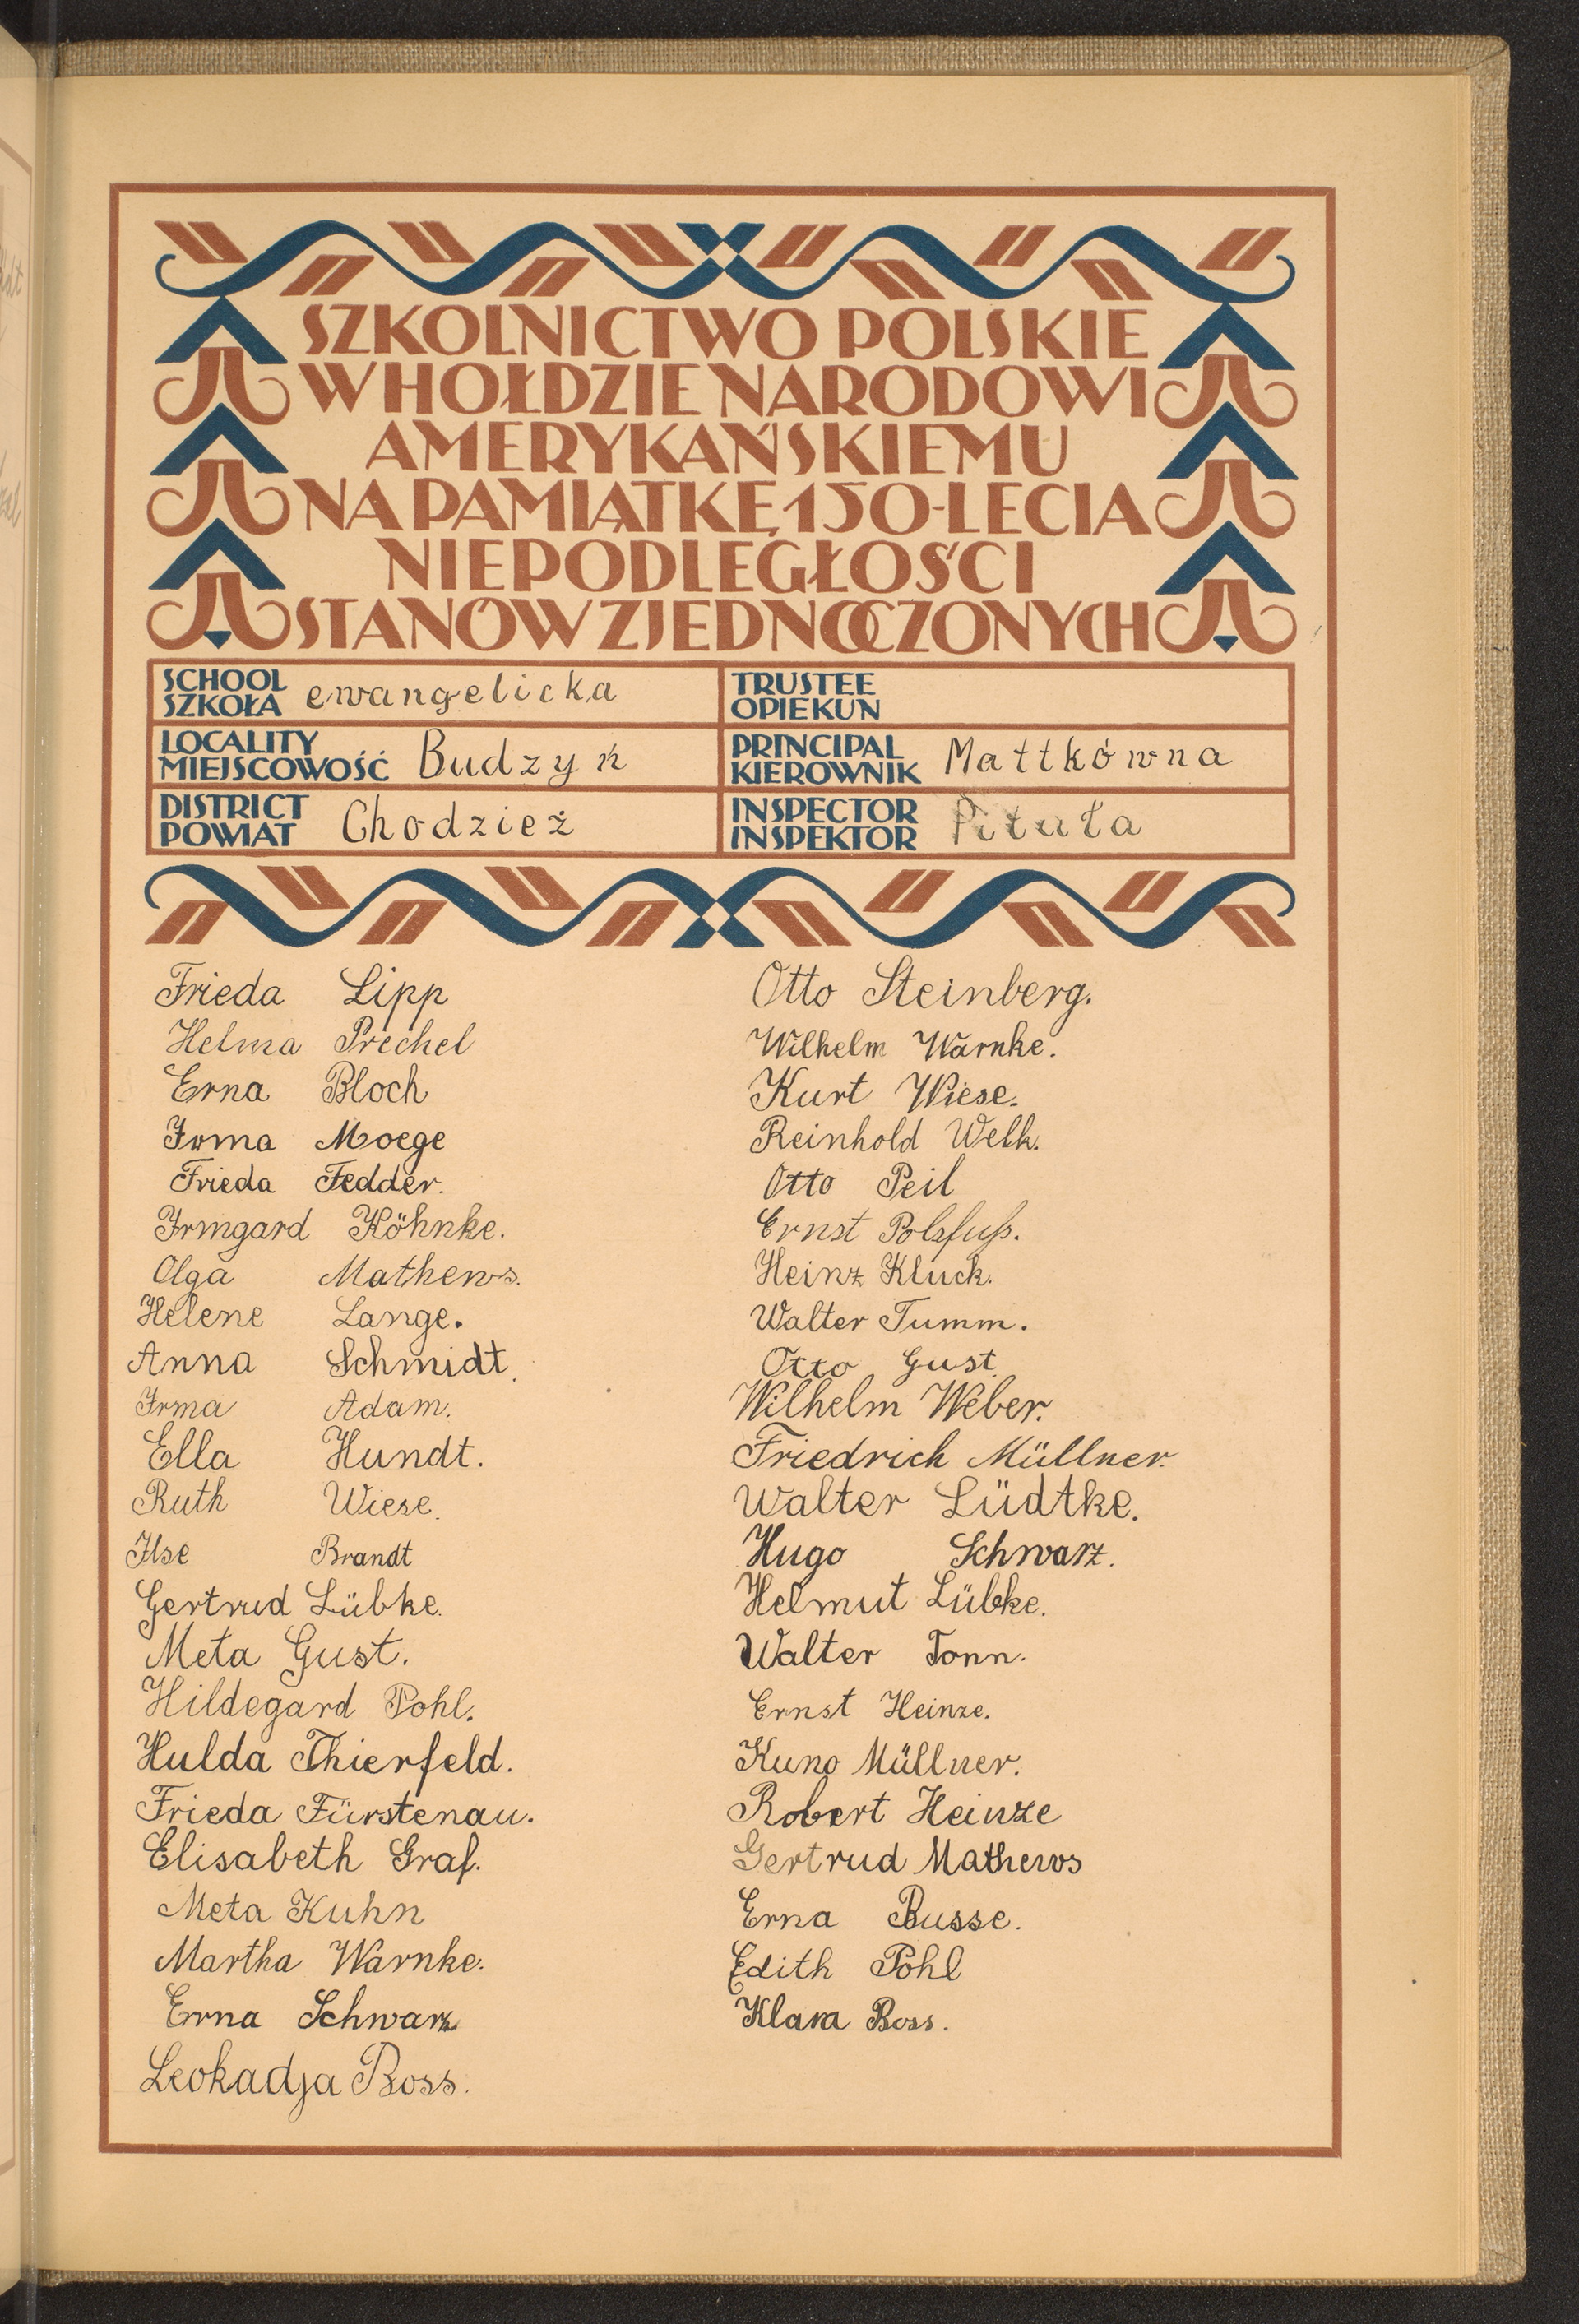 SZKOLNICTWO POLSKIE
W HOŁDZIE NARODOWI
AMERYKAŃSKIEMU
NA PAMIĄTKĘ 150-LECIA
NIEPODLEGŁOŚCI
STANÓW ZJEDNOCZONYCH
SCHOOL
SZKOŁA ewangelicka
TRUSTEE
OPIEKUN
LOCALITY
MIEJSCOWOŚĆ Budzyń
PRINCIPAL
KIEROWNIK Mattkówna
DISTRICT
POWIAT Chodzież
INSPECTOR
INSPEKTOR
Frieda Lipp
Helma Prechel
Erna Bloch
Irma Moege
Frieda Fedder.
Irmgard Köhnke.
Olga Mathews.
Helene Lange.
Anna Schmidt.
Irma Adam.
Ella Hundt.
Ruth Wiese.
Ilse Brandt
Gertrud Lübke.
Meta Gust.
Hildegard Pohl.
Hulda Thierfeld.
Frieda Fürstenau.
Elisabeth Graf.
Meta Kuhn
Martha Warnke.
Erna Schwarz
Leokadja Boss.
Otto Steinberg.
Wilhelm Warnke.
Kurt Wiese.
Reinhold Welk.
Otto Peil
Ernst Polsfuß.
Heinz Kluck.
Walter Tumm.
Otto Gust.
Wilhelm Weber.
Friedrich Müllner.
Walter Lüdtke.
Hugo Schwarz.
Helmut Lübke.
Walter Tonn.
Ernst Heinze.
Kuno Müllner.
Robert Heinze
Gertrud Mathews
Erna Busse.
Edith Pohl
Klara Boss.